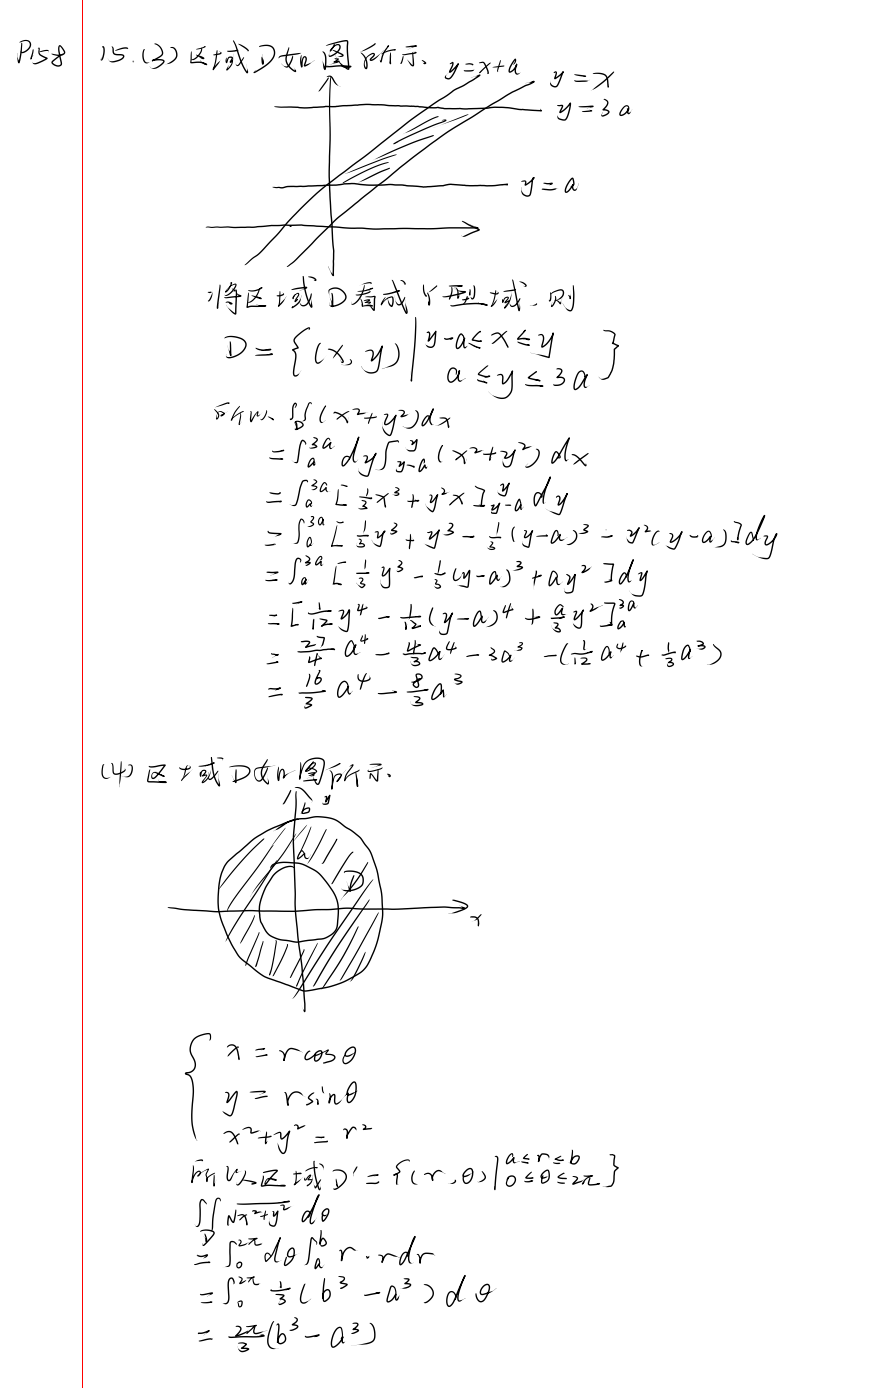 P158 15.(3)区域D如图所示.
y=x+a
y=x
y=3a
y=a
将区域D看成Y型域.则
D={(x,y)|y-a≤x≤y
a≤y≤3a}
所以∬D(x²+y²)dx
=∫ₐ³ᵃdy∫_{y-a}^{y}(x²+y²)dx
=∫ₐ³ᵃ[⅓x³+y²x]_{y-a}^{y}dy
=∫ₐ³ᵃ[⅓y³+y³-⅓(y-a)³-y²(y-a)]dy
=∫ₐ³ᵃ[⅓y³-⅓(y-a)³+ay²]dy
=[1/12y⁴-1/12(y-a)⁴+a/3y²]ₐ³ᵃ
=27/4a⁴-4/3a⁴-3a³-(1/12a⁴+1/3a³)
=16/3a⁴-8/3a³
(4)区域D如图所示.
b y
a
D
x
x=rcosθ
y=rsinθ
x²+y²=r²
所以区域D'={(r,θ)|a≤r≤b
0≤θ≤2π}
∬D√x²+y² dσ
=∫₀^{2π}dθ∫ₐᵇr·rdr
=∫₀^{2π}⅓(b³-a³)dθ
=2π/3(b³-a³)